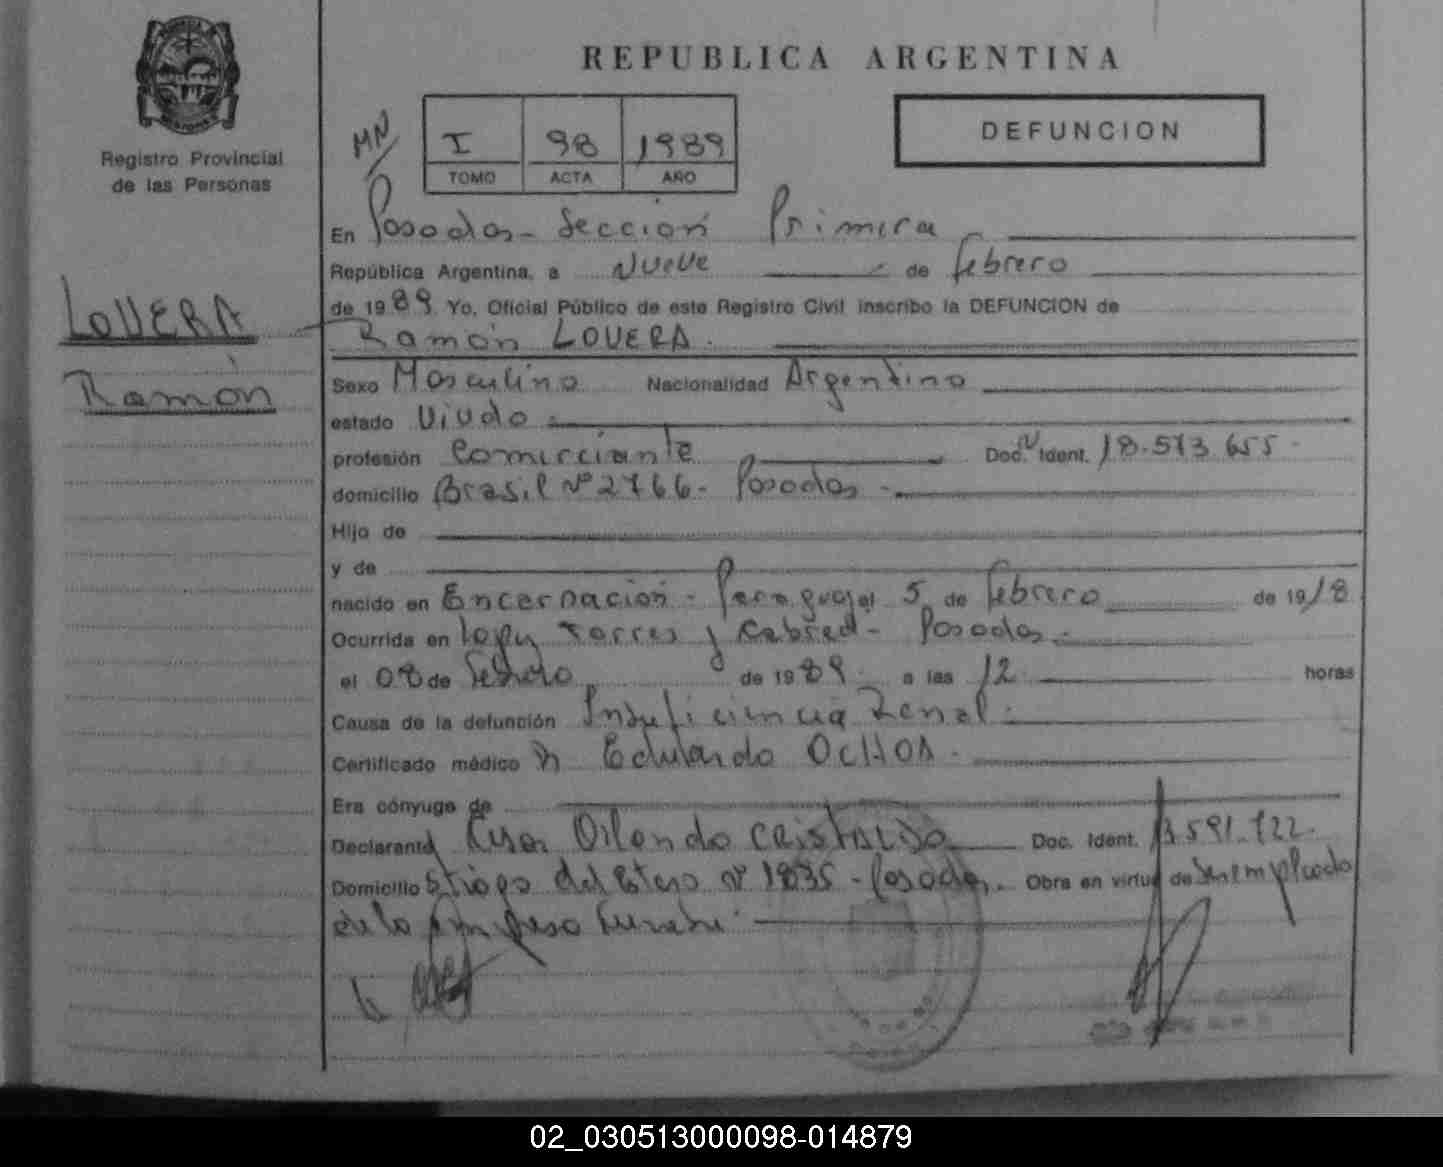 REPUBLICA ARGENTINA
Registro Provincial
de las Personas
MN
I 98 1989
TOMO ACTA AÑO
DEFUNCION
En Posadas - Sección Primera
República Argentina, a Nueve de febrero
de 1989 Yo, Oficial Público de este Registro Civil inscribo la DEFUNCION de
LOVERA
Ramón
Ramón LOVERA.
Sexo Masculino Nacionalidad Argentino
estado Viudo
profesión Comerciante Doc. Ident. 18.573.655
domicilio Brasil Nº 2766 - Posadas -
Hijo de
y de
nacido en Encarnación - Paraguay el 5 de febrero de 1918
Ocurrida en Lopez Torres y Cabred - Posadas -
el 08 de febrero de 1989 a las 12 horas
Causa de la defunción Insuficiencia Renal
Certificado médico Eduardo OCHOA -
Era cónyuge de
Declarante Orlando CRISTALDO Doc. Ident.
Domicilio Stiago del Estero Nº 1835 - Posadas. Obra en virtud de ser empleado
de la Empresa Funebre
02_030513000098-014879